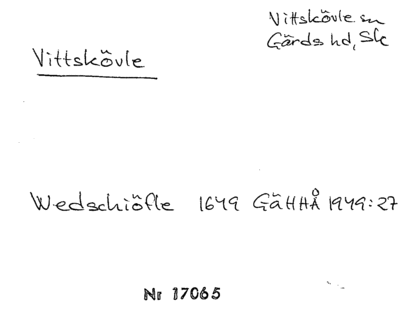 Vittskövle sn
Gärds hd, Sk
Vittskövle
Wedschiöfle 1649 GäHHÅ 1949:27
Nr 17065